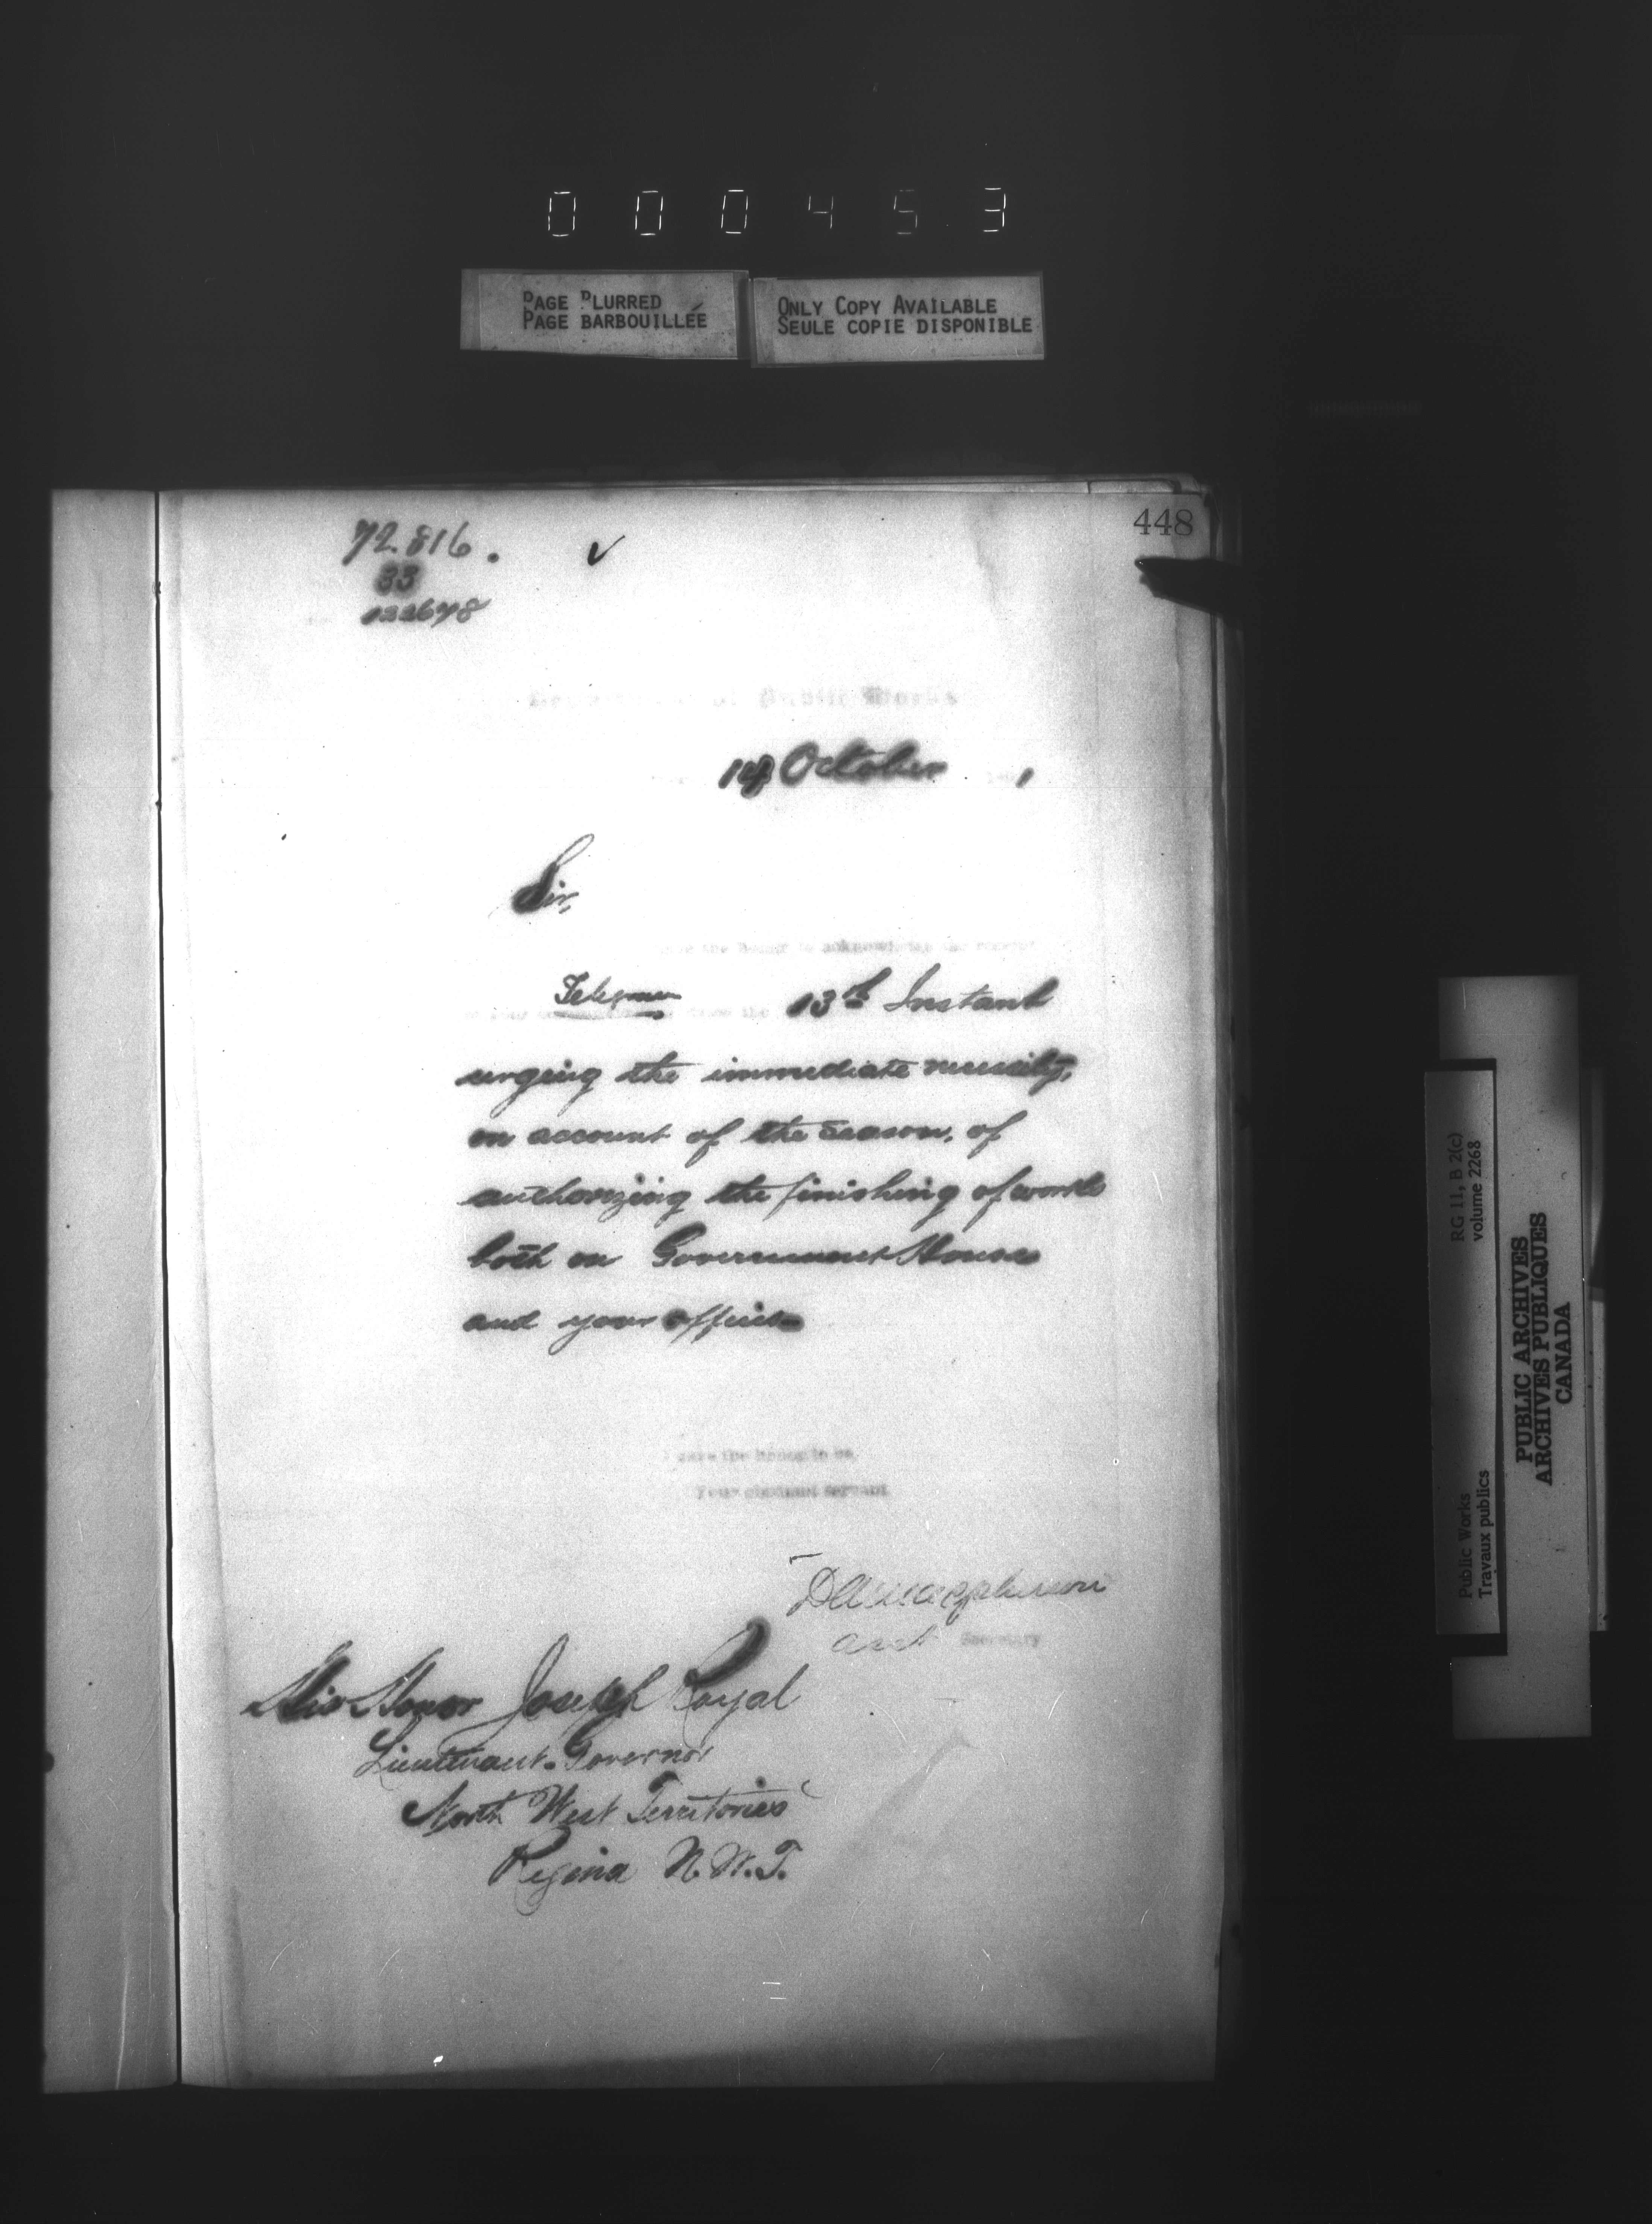 000453
PAGE BLURRED
PAGE BARBOUILLÉE
ONLY COPY AVAILABLE
SEULE COPIE DISPONIBLE
448
72.816.
33
122678
Department of Public Works
14 October 1
Sir,
have the honor to acknowledge the receipt
Telegram 13th Instant
urging the immediate necessity,
on account of the season, of
authorizing the finishing of works
both on Government House
and your offices
I have the honor to be,
Your obedient servant
Secretary
His Honor Joseph Royal
Lieutenant-Governor
North West Territories
Regina N.W.T.
RG 11, B 2(c)
volume 2268
Public Works
Travaux publics
PUBLIC ARCHIVES
ARCHIVES PUBLIQUES
CANADA